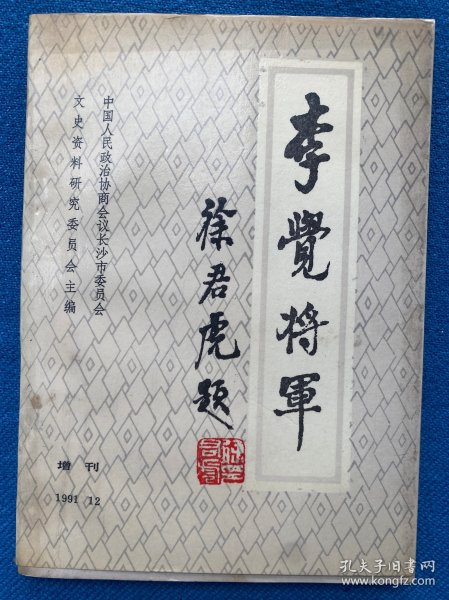 李覺将軍
徐君虎题
中国人民政治协商会议长沙市委员会
文史资料研究委员会主编
增刊
1991 12
孔夫子旧书网
www.kongfz.com